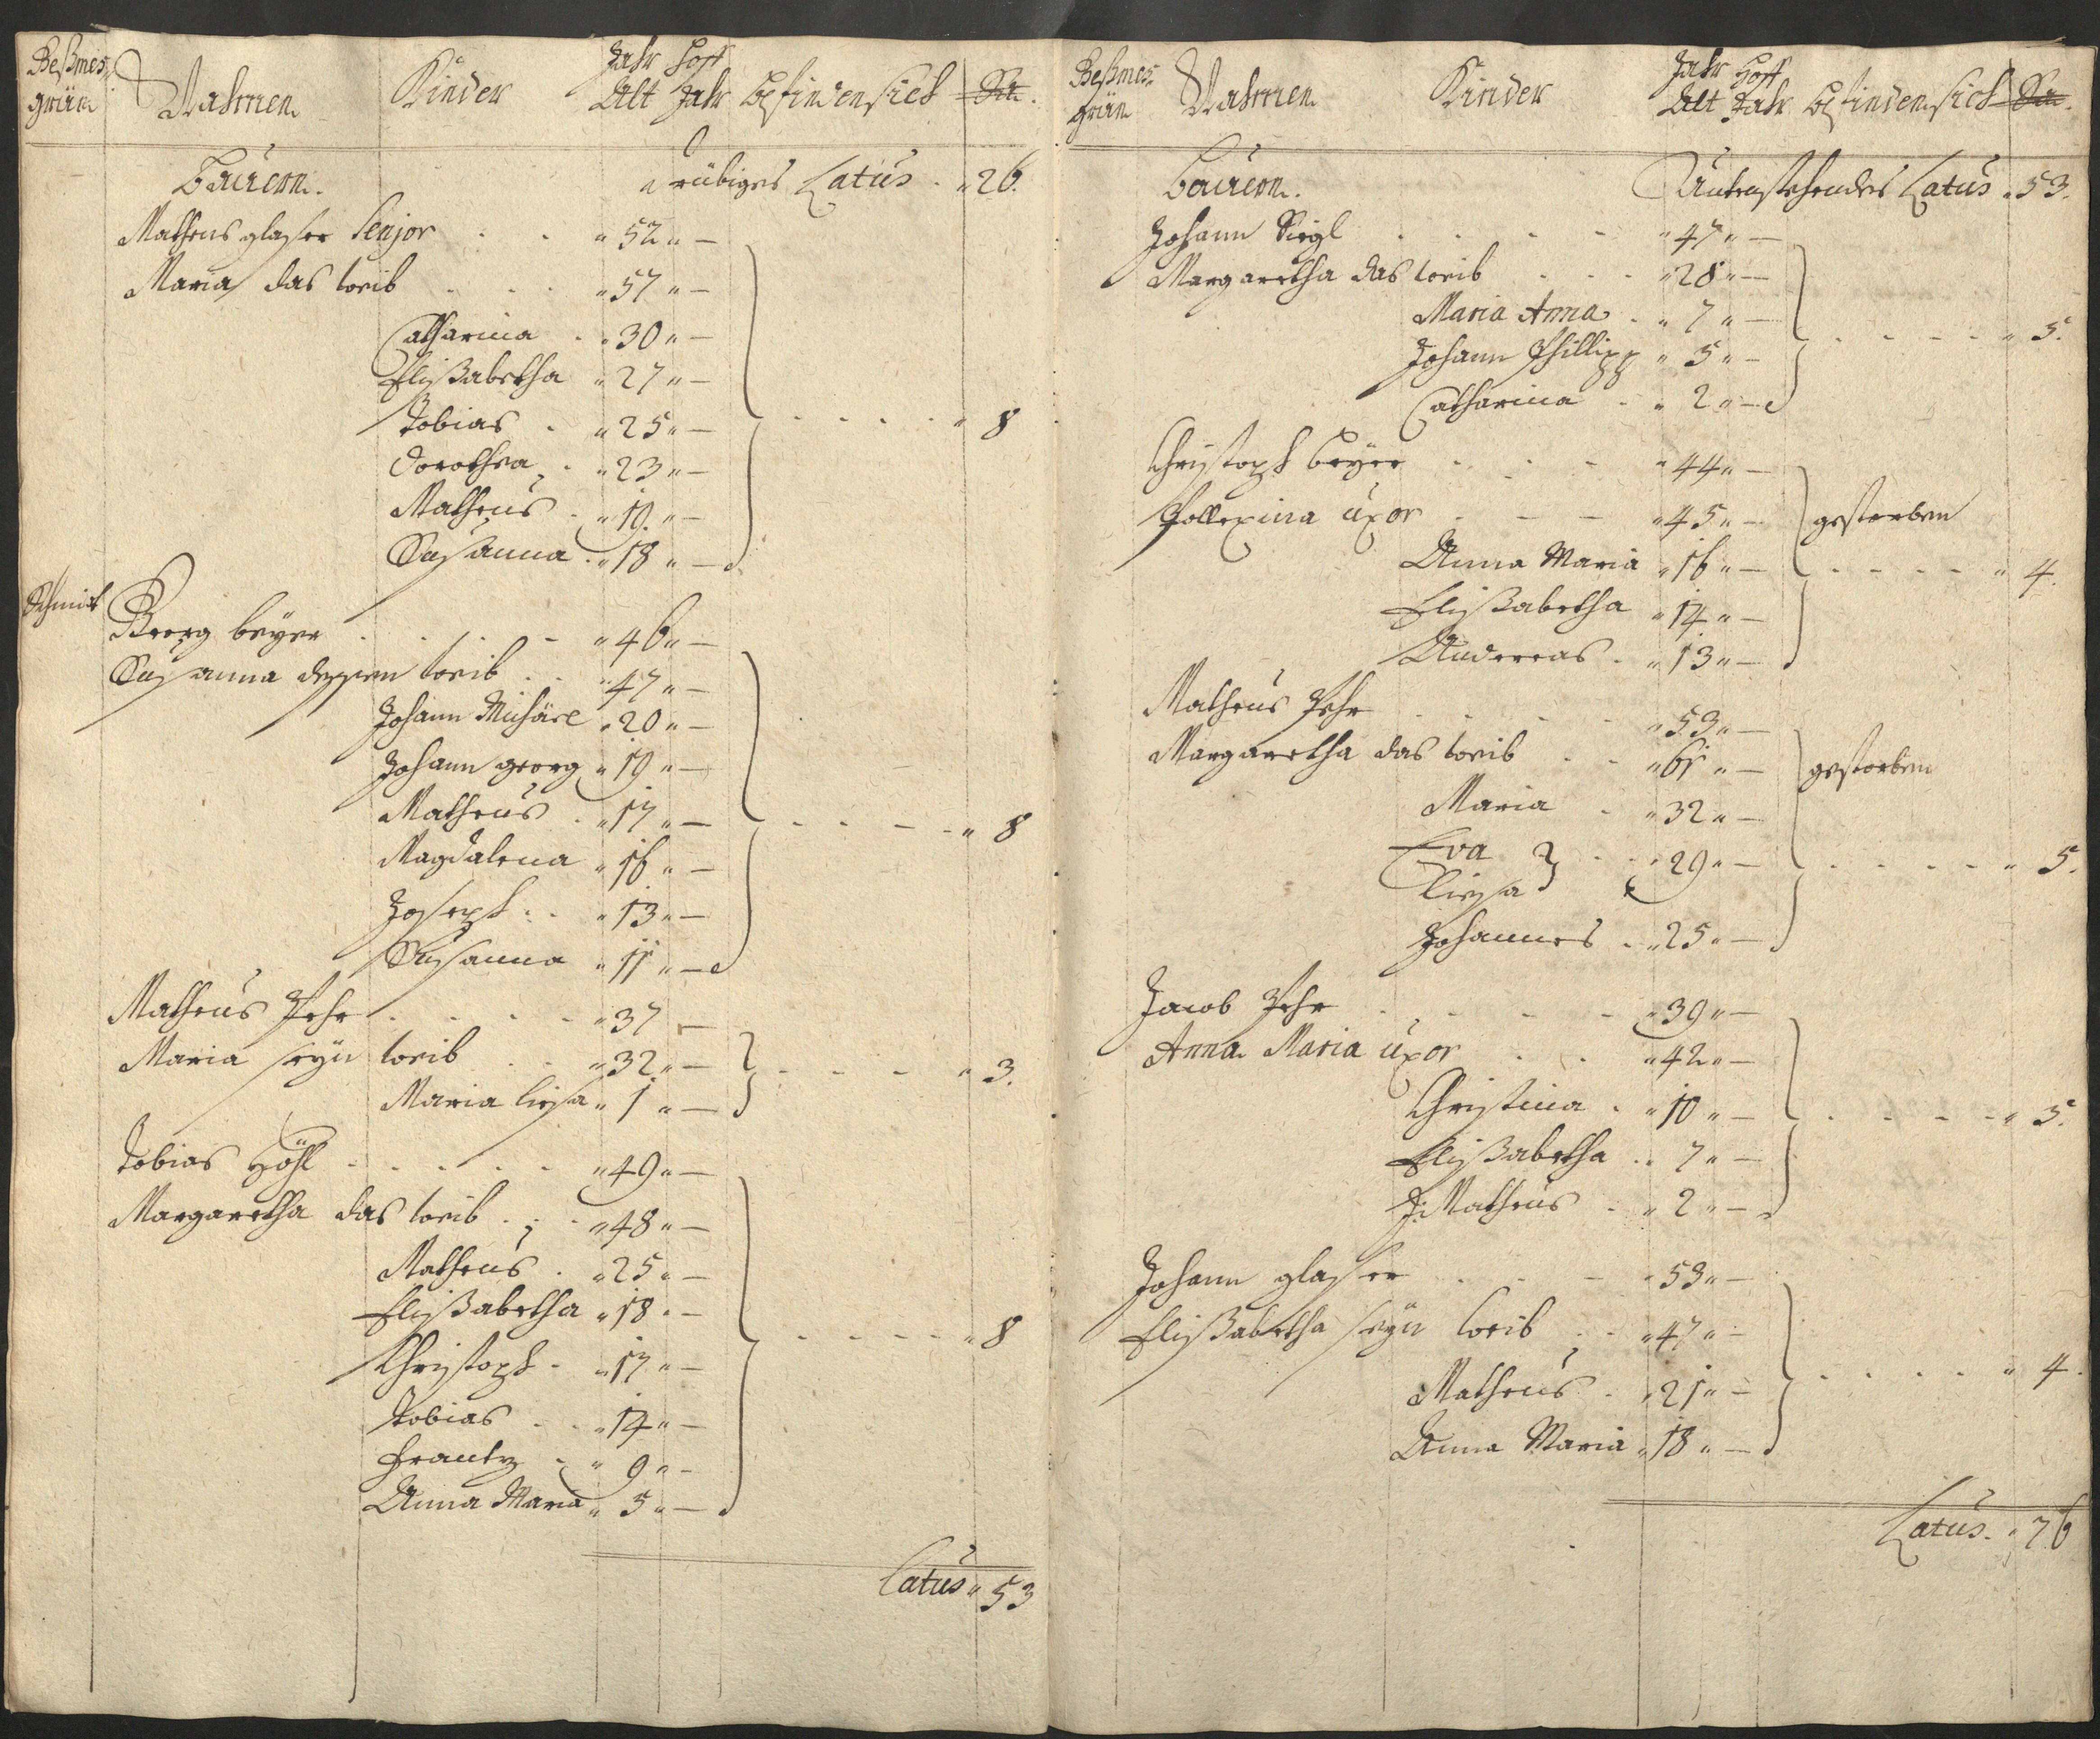 Beßmes
grün Nahmen Kinder Jahr Alt Hoff Jahr befinden sich Sa.
Bauern. Drübiges Latus 26.
Matheus glaser Senjor 52
Maria das weib 57
Catharina 30
Elißabetha 27
Tobias 25 8
Dorothea 23
Matheus 19
Susanna 18
Schmit Georg beyer 46
Susanna dessen weib 47
Johann Michäel 20
Johann georg 19
Matheus 17 8
Magdalena 16
Joseph 13
Susanna 11
Matheus Pehr 37
Maria seyn weib 32 3.
Maria liesa 1
Tobias Höhl 49
Margaretha das weib 48
Matheus 25
Elißabetha 18
Christoph 17 8
Tobias 14
Frantz 9
Anna Maria 5
Latus 53
Beßmes
grün Nahmen Kinder Jahr Alt Hoff Jahr befinden sich Sa.
Bauern. Untenstehendes Latus 53.
Johann Siegl 47
Margaretha das weib 28
Maria Anna 7
Johann Phillipp 5 5.
Catharina 2
Christoph beyer 44
Pollexina uxor 45 gestorben
Anna Maria 16 4.
Elißabetha 14
Andereas 13
Matheus Pehr 53
Margaretha das weib 61 gestorben
Maria 32
Eva 29 5.
liesa
Johannes 25
Jacob Pehr 39
Anna Maria uxor 42
Christina 10 5.
Elißabetha 7
J: Matheus 2
Johann glaser 53
Elißabetha seyn weib 47
Matheus 21 4.
Anna Maria 18
Latus 76